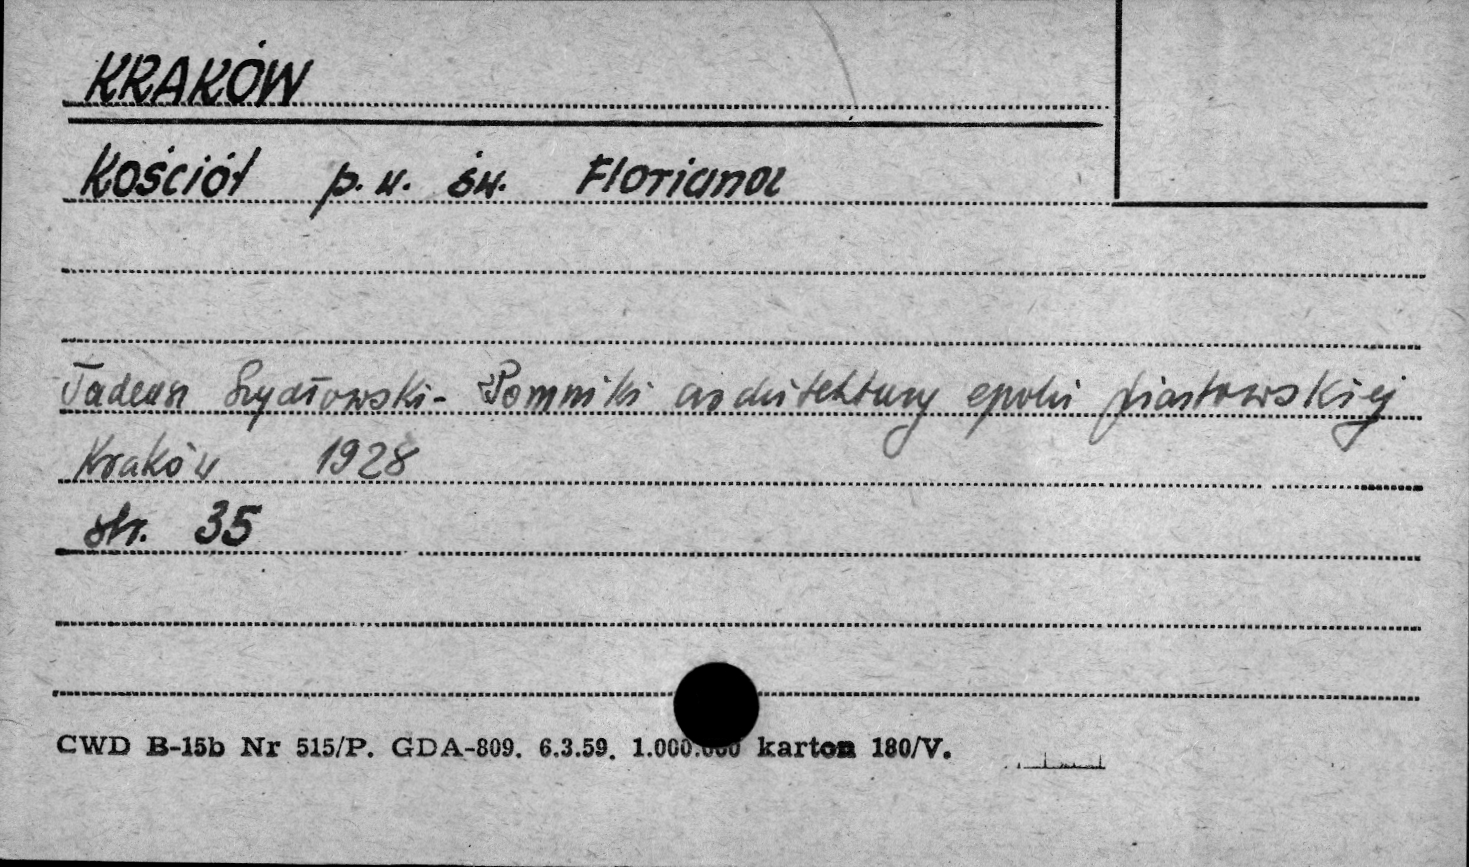 KRAKÓW
Kościół p.w. św. Floriana
Tadeusz Szydłowski - Pomniki architektury epoki piastowskiej
Kraków 1928
str. 35
CWD B-15b Nr 515/P. GDA-809. 6.3.59. 1.000.000 karton 180/V.